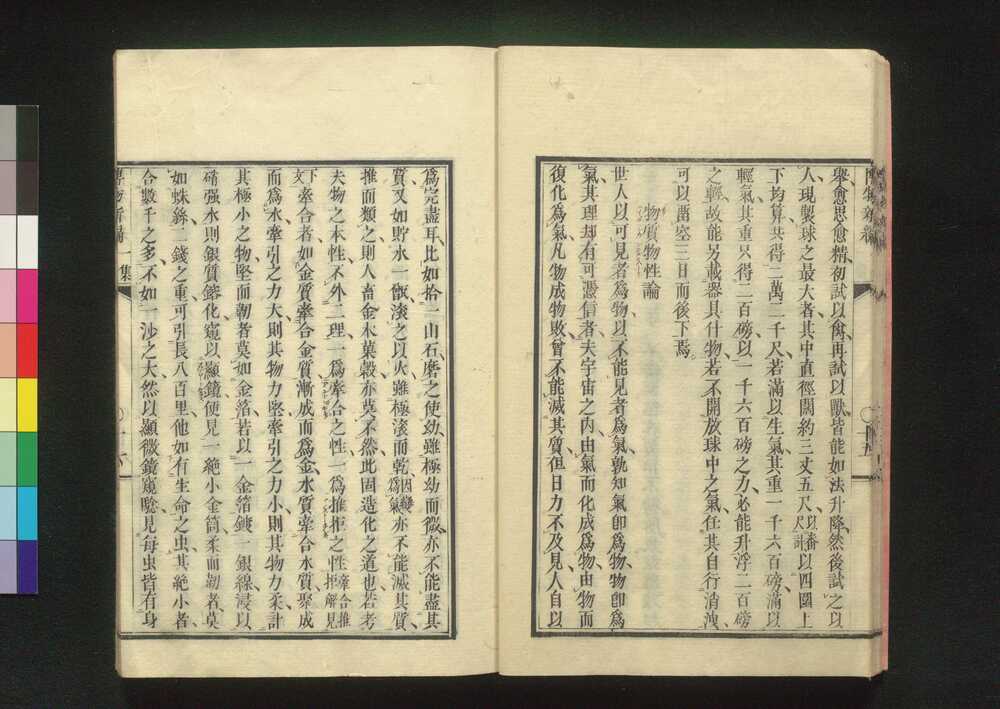 博物新編
十五
舉愈思愈精初試以禽再試以獸皆能如法升降然後試之以
人現製球之最大者其中直徑闊約三丈五尺以番尺計以四圍上
下均算共得二萬二千尺若滿以生氣其重一千六百磅滿以
輕氣其重只得二百磅以一千六百磅之力必能升浮二百磅
之輕故能另載器具什物若不開放球中之氣任其自行消洩
可以凿空三日而後下焉
物質物性論
世人以可見者為物以不能見者為氣孰知氣卽為物物卽為
氣其理却有可憑信者夫宇宙之內由氣而化成為物由物而
復化為氣凡物成物敗曾不能滅其質但日力不及見人自以
為完盡耳比如拾一山石磨之使幼雖極幼而微亦不能盡其
質又如貯水一甑滾之以火雖極滾而乾因變為氣亦不能滅其質
推而類之則人畜金木菓穀亦莫不然此固造化之道也若考
夫物之本性不外二理一為牽合之性一為推拒之性牽合推拒解見
下文牽合者如金質牽合金質漸成而為金水質牽合水質聚成
而為水牽引之力大則其物力堅牽引之力小則其物力柔計
其極小之物堅而韌者莫如金箔若以一金箔鍍一銀線浸以
硝强水則銀質鎔化窺以顯鏡便見一絕小金筒柔而韌者莫
如蛛絲二錢之重可引長八百里他如有生命之虫其絕小者
合數千之多不如一沙之大然以顯微鏡窺驗見每虫皆有身
博物新編 一集
十六